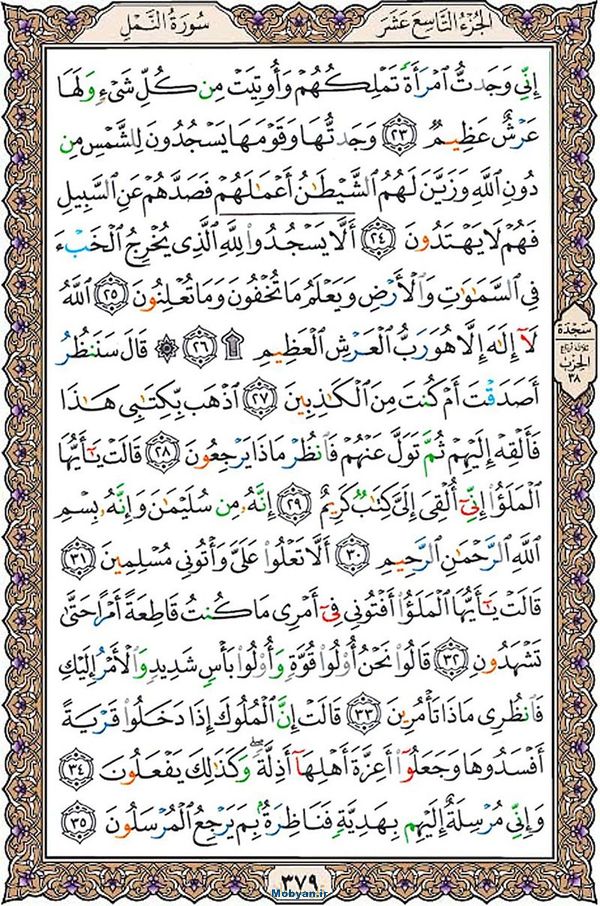 الجزء التاسع عشر
سورة النمل
إِنِّي وَجَدتُّ ٱمْرَأَةً تَمْلِكُهُمْ وَأُوتِيَتْ مِن كُلِّ شَيْءٍ وَلَهَا
عَرْشٌ عَظِيمٌ ﴿٢٣﴾ وَجَدتُّهَا وَقَوْمَهَا يَسْجُدُونَ لِلشَّمْسِ مِن
دُونِ ٱللَّهِ وَزَيَّنَ لَهُمُ ٱلشَّيْطَٰنُ أَعْمَٰلَهُمْ فَصَدَّهُمْ عَنِ ٱلسَّبِيلِ
فَهُمْ لَا يَهْتَدُونَ ﴿٢٤﴾ أَلَّا يَسْجُدُوا۟ لِلَّهِ ٱلَّذِي يُخْرِجُ ٱلْخَبْءَ
فِي ٱلسَّمَٰوَٰتِ وَٱلْأَرْضِ وَيَعْلَمُ مَا تُخْفُونَ وَمَا تُعْلِنُونَ ﴿٢٥﴾ ٱللَّهُ
لَآ إِلَٰهَ إِلَّا هُوَ رَبُّ ٱلْعَرْشِ ٱلْعَظِيمِ ۩ ﴿٢٦﴾ ۞ قَالَ سَنَنظُرُ
أَصَدَقْتَ أَمْ كُنتَ مِنَ ٱلْكَٰذِبِينَ ﴿٢٧﴾ ٱذْهَب بِّكِتَٰبِي هَٰذَا
فَأَلْقِهْ إِلَيْهِمْ ثُمَّ تَوَلَّ عَنْهُمْ فَٱنظُرْ مَاذَا يَرْجِعُونَ ﴿٢٨﴾ قَالَتْ يَٰٓأَيُّهَا
ٱلْمَلَؤُا۟ إِنِّيٓ أُلْقِيَ إِلَيَّ كِتَٰبٌ كَرِيمٌ ﴿٢٩﴾ إِنَّهُۥ مِن سُلَيْمَٰنَ وَإِنَّهُۥ بِسْمِ
ٱللَّهِ ٱلرَّحْمَٰنِ ٱلرَّحِيمِ ﴿٣٠﴾ أَلَّا تَعْلُوا۟ عَلَيَّ وَأْتُونِي مُسْلِمِينَ ﴿٣١﴾
قَالَتْ يَٰٓأَيُّهَا ٱلْمَلَؤُا۟ أَفْتُونِي فِيٓ أَمْرِي مَا كُنتُ قَاطِعَةً أَمْرًا حَتَّىٰ
تَشْهَدُونِ ﴿٣٢﴾ قَالُوا۟ نَحْنُ أُو۟لُوا۟ قُوَّةٍ وَأُو۟لُوا۟ بَأْسٍ شَدِيدٍ وَٱلْأَمْرُ إِلَيْكِ
فَٱنظُرِي مَاذَا تَأْمُرِينَ ﴿٣٣﴾ قَالَتْ إِنَّ ٱلْمُلُوكَ إِذَا دَخَلُوا۟ قَرْيَةً
أَفْسَدُوهَا وَجَعَلُوٓا۟ أَعِزَّةَ أَهْلِهَآ أَذِلَّةً ۖ وَكَذَٰلِكَ يَفْعَلُونَ ﴿٣٤﴾
وَإِنِّي مُرْسِلَةٌ إِلَيْهِم بِهَدِيَّةٍ فَنَاظِرَةٌۢ بِمَ يَرْجِعُ ٱلْمُرْسَلُونَ ﴿٣٥﴾
سجدة
ثلاثة أرباع
الحزب
٣٨
٣٧٩
Mobyan.ir